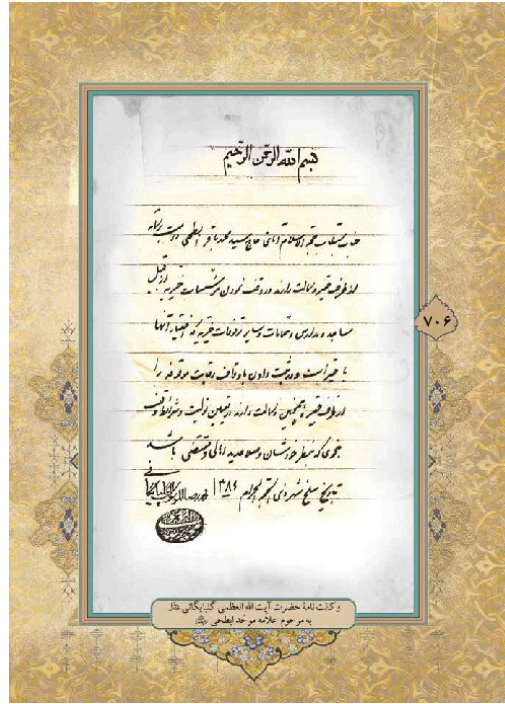 بسم الله الرحمن الرحیم
جناب مستطاب حجة الاسلام آقای حاج سید محمد باقر ابطحی دامت برکاته
از طرف حقیر وکالت دارند در وقف نمودن مؤسسات خیریه از قبیل
مساجد و مدارس و حمامات و سایر موقوفات خیریه که اختیار آنها
با حقیر است و در ثبت دادن باوقاف رقابت موقوفه را
از طرف حقیر و همچنین وکالت دارند در تعیین تولیت و شرائط وقف
بنحوی که بنظر خودشان و صلاحدید اهالی مقتضی باشد
بتاریخ سلخ شهر ذی الحجة الحرام ۱۳۸۶
محمد رضا الموسوی الگلپایگانی
۷۰۶
وکالت نامهٔ حضرت آیت الله العظمی گلپایگانی
به مرحوم علامه موحد ابطحی